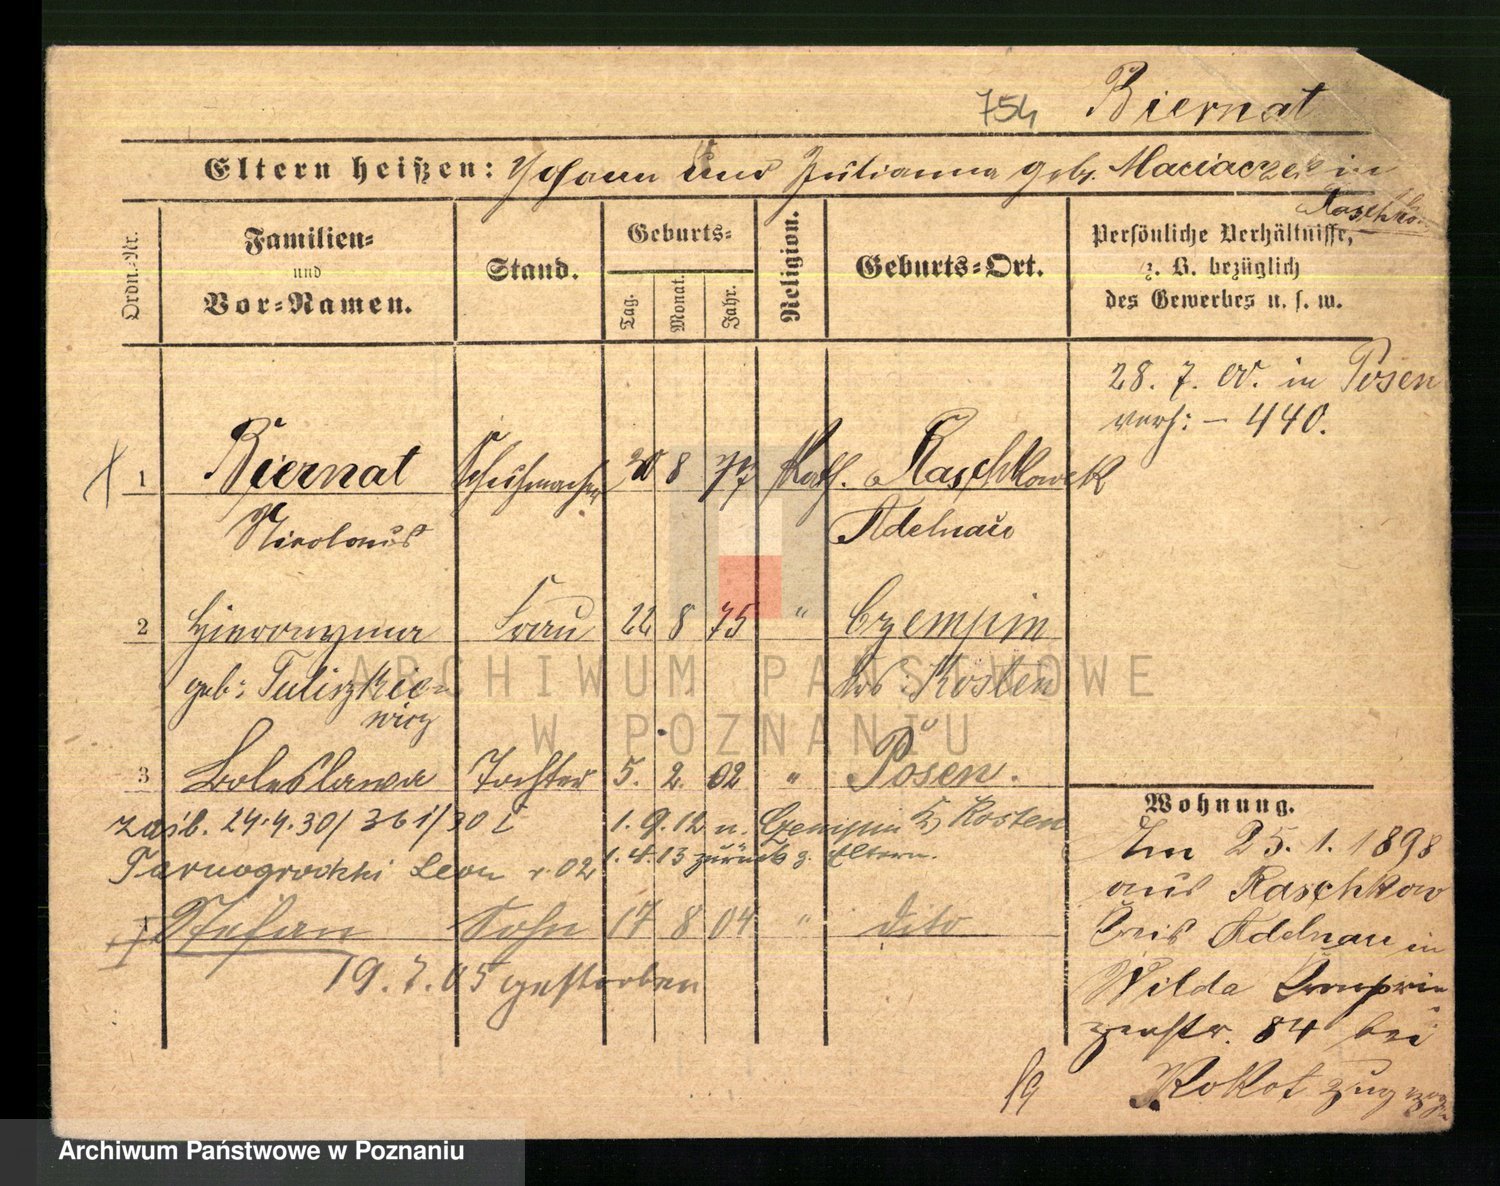 754 Biernat
Eltern heißen: Johann und Julianna geb. Maciaczek in
Raschko
Ordn.-Nr.
Familien-
und
Vor-Namen.
Stand.
Geburts-
Tag.
Monat.
Jahr.
Religion.
Geburts-Ort.
Persönliche Verhältnisse,
z. B. bezüglich
des Gewerbes u. s. w.
28. 7. 00. in Posen
verh: – 440.
1 Biernat Schuhmacher 8 77 Kath. Raschkowek
Nicolaus Adelnau
2 Hieronyma Frau 22 8 75 " Czempin
geb: Tuliszkie-
wicz
Kosten
3 Boleslawa Tochter 5. 2. 02 " Posen.
zaśb. 24.4.30/ 361/30
1.9.12 n. Czempin Kosten
Tarnogrodzki Leon r. 02
1.4.13 zurück z. Eltern.
Stefan Sohn 17 8 04 " dito
19.7.05 gestorben
Wohnung.
Im 25.1.1898
aus Raschkow
Kreis Adelnau in
Wilda Kronprin
zenstr. 84 bei
Kokot zugezogen
ARCHIWUM PAŃSTWOWE
W POZNANIU
Archiwum Państwowe w Poznaniu